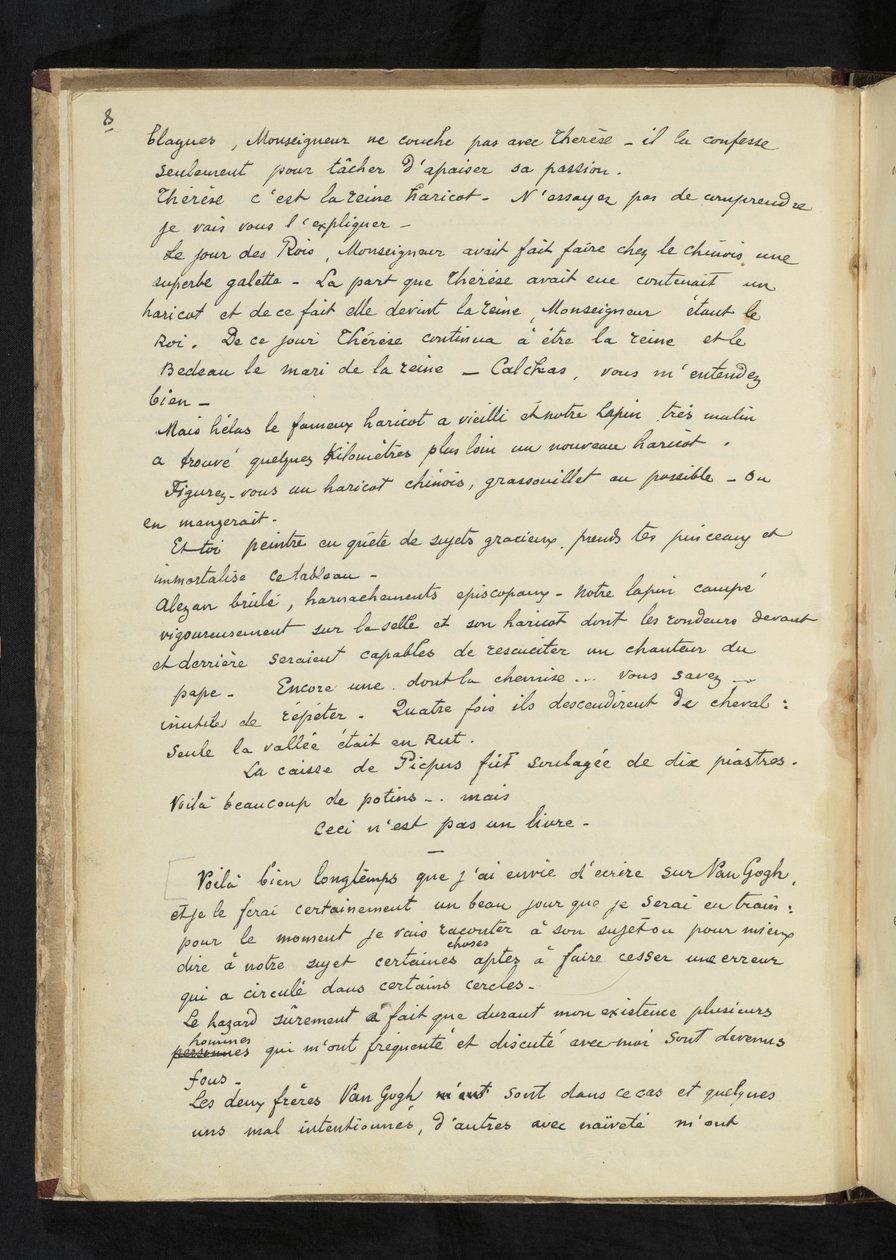 8
blagues, Monseigneur ne couche pas avec Thérèse - il la confesse
seulement pour tâcher d'apaiser sa passion.
Thérèse c'est la reine haricot - N'essayez pas de comprendre
je vais vous l'expliquer -
Le jour des Rois, Monseigneur avait fait faire chez le chinois une
superbe galette - La part que Thérèse avait eue contenait un
haricot et de ce fait elle devint la reine, Monseigneur étant le
Roi. De ce jour Thérèse continua à être la reine et le
Bedeau le mari de la reine - Calchas, vous m'entendez
bien -
Mais hélas le fameux haricot a vieilli et notre lapin très malin
a trouvé quelques Kilomètres plus loin un nouveau haricot.
Figurez-vous un haricot chinois, grassouillet au possible - On
en mangerait -
Et toi peintre en quête de sujets gracieux. prends tes pinceaux et
immortalise ce tableau -
Alezan brûlé, harnachements episcopaux - Notre lapin campé
vigoureusement sur la selle et son haricot dont les rondeurs devant
et derrière seraient capables de rescuciter un chanteur du
pape - Encore une dont la chemise ... vous savez --
inutile de répéter - Quatre fois ils descendirent de cheval :
seule la vallée était en Rut.
La caisse de Picpus fût soulagée de dix piastres.
Voilà beaucoup de potins -.. mais
Ceci n'est pas un livre -
Voilà bien longtemps que j'ai envie d'écrire sur Van Gogh,
et je le ferai certainement un beau jour que je serai en train :
pour le moment je vais raconter à son sujet ou pour mieux
choses
dire à notre sujet certaines aptes à faire cesser une erreur
qui a circulé dans certains cercles -
Le hazard sûrement a fait que durant mon existence plusieurs
hommes
personnes qui m'ont fréquenté et discuté avec moi sont devenus
fous -
Les deux frères Van Gogh m'ont sont dans ce cas et quelques
uns mal intentionnés, d'autres avec naïveté m'ont